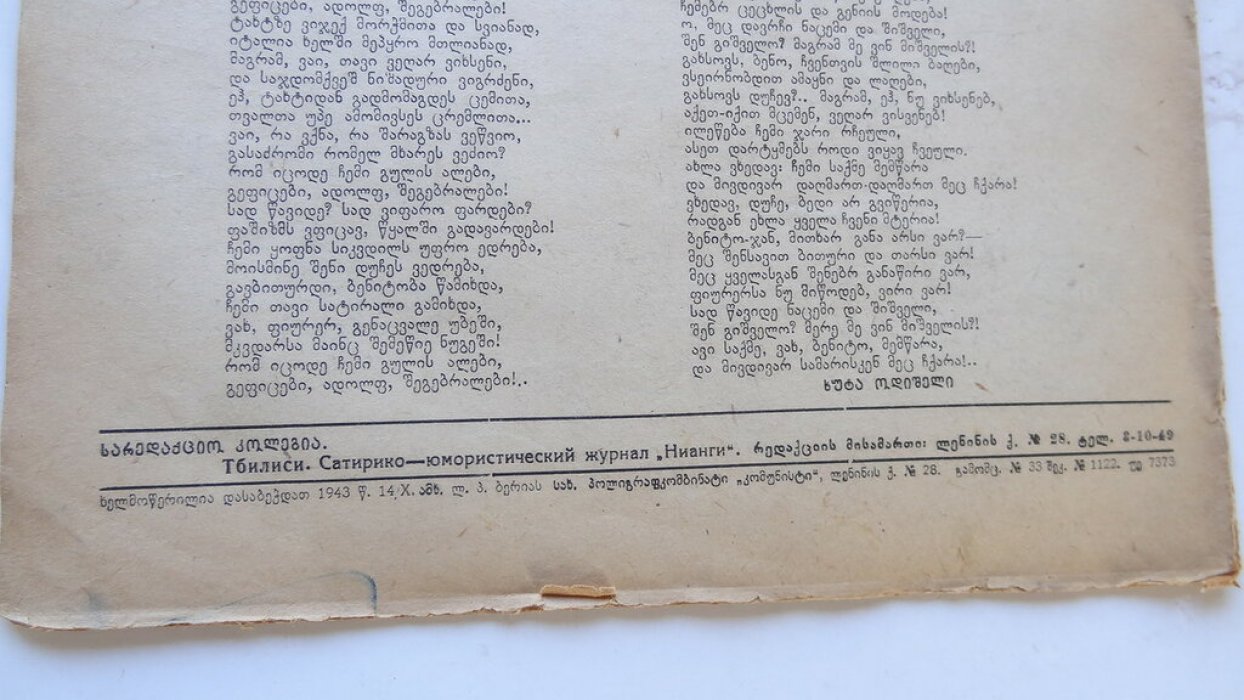 გეფიცები, ადოლფ, შეგებრალები!
ტახტზე ვიჯექ მორჭმითა და სვიანად,
იტალია ხელში მეპყრო მთლიანად,
მაგრამ, ვაი, თავი ველარ ვიხსენი,
და საჯდომქვეშ ნიშადური ვიგრძენი,
ეჰ, ტახტიდან გადმომაგდეს ცემითა,
თვალთა უპე ამომივსეს ცრემლითა...
ვაი, რა ვქნა, რა შარაგზას ვეწვიო,
გასაძრომი რომელ მხარეს ვეძიო?
რომ იცოდე ჩემი გულის ალები,
გეფიცები, ადოლფ, შეგებრალები!
სად წავიდე? სად ვიფარო ფარდები?
ფაშიზმს ვფიცავ, წყალში გადავარდები!
ჩემი ყოფნა სიკვდილს უფრო ედრება,
მოისმინე შენი დუჩეს ვედრება,
გავბითურდი, ბენიტობა წამიხდა,
ჩემი თავი სატირალი გამიხდა,
ვახ, ფიურერ, გენაცვალე უბეში,
მკვდარსა მაინც შემეწიე ნუგეში!
რომ იცოდე ჩემი გულის ალები,
გეფიცები, ადოლფ, შეგებრალები!..
ჩემებრ ცეცხლის და გენიის მოდება!
ო, მეც დავრჩი ნაცემი და შიშველი,
შენ გიშველო? მაგრამ მე ვინ მიშველის?!
გახსოვს, ბენო, ჩვენთვის შლილი ბაღები,
ვსეირნობდით ამაყნი და ლაღები,
გახსოვს დუჩევ?.. მაგრამ, ეჰ, ნუ ვიხსენებ,
აქეთ-იქით მცემენ, ვეღარ ვისვენებ!
ილეწება ჩემი ჯარი რჩეული,
ასეთ დარტყმებს როდი ვიყავ ჩვეული.
ახლა ვხედავ: ჩემი საქმე მემწარა
და მივდივარ დაღმართ-დაღმართ მეც ჩქარა!
ვხედავ, დუჩე, ბედი არ გვიწერია,
რადგან ეხლა ყველა ჩვენი მტერია!
ბენიტო-ჯან, მითხარ განა არსი ვარ?—
მეც შენსავით ბითური და თარსი ვარ!
მეც ყველასგან შენებრ განაწირი ვარ,
ფიურერსა ნუ მიწოდებ, ვირი ვარ!
სად წავიდე ნაცემი და შიშველი,
შენ გიშველო? მერე მე ვინ მიშველის?!
ავი საქმე, ვახ, ბენიტო, მემწარა,
და მივდივარ სამარისკენ მეც ჩქარა!..
ხუტა ოდიშელი
სარედაქციო კოლეგია.
Тбилиси. Сатирико—юмористический журнал „Нианги“. რედაქციის მისამართი: ლენინის ქ. № 28. ტელ. 3-10-49
ხელმოწერილია დასაბეჭდათ 1943 წ. 14/X. ამხ. ლ. პ. ბერიას სახ. პოლიგრაფკომბინატი „კომუნისტი“, ლენინის ქ. № 28. გამომც. № 33 შეკ. № 1122. უე 7373